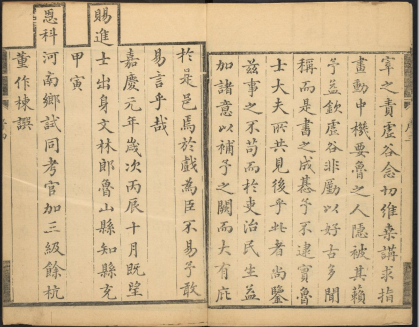 宰之責虛谷念切維桑講求指
畫動中機要魯之人隱被其賴
予益欽虛谷非勵以好古多聞
稱而是書之成綦予不逮實魯
士大夫所共見後乎此者尚鑒
茲事之不苟而於吏治民生益
加諸意以補予之闕而大有庇
於是邑焉於戲為臣不易予敢
易言乎哉
嘉慶元年歲次丙辰十月既望
賜進士出身文林郎魯山縣知縣充
甲寅
恩科河南鄉試同考官加三級餘杭
董作棟譔